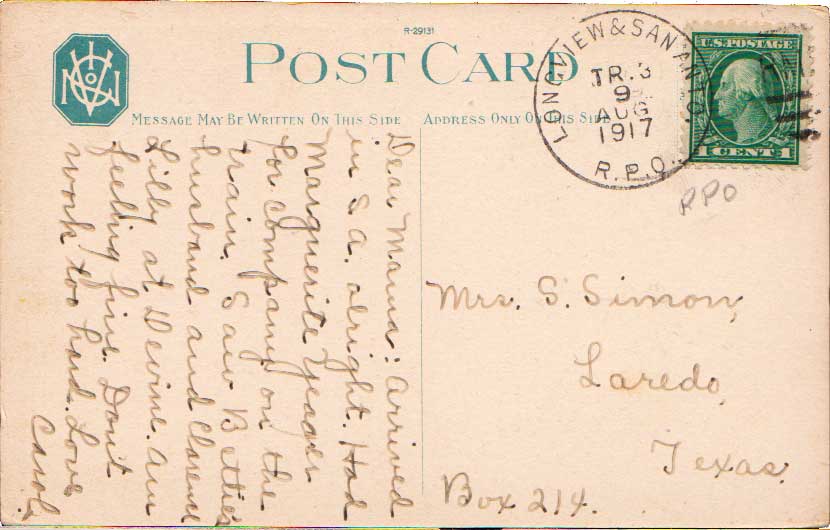 R-29131
POST CARD
MESSAGE MAY BE WRITTEN ON THIS SIDE
ADDRESS ONLY ON THIS SIDE
LONGVIEW & SAN ANTO.
TR. 3
9
AUG
1917
R.P.O.
U.S. POSTAGE
1 CENT 1
RPO
Dear Mama: Arrived
in S.A. alright. Had
Marguerite Yeager
for company on the
train. Saw Bettie's
husband and Clarence
Lilly at Devine. Am
feeling fine. Don't
work too hard. Love
Carol.
Mrs. S. Simon,
Laredo,
Texas.
Box 214.